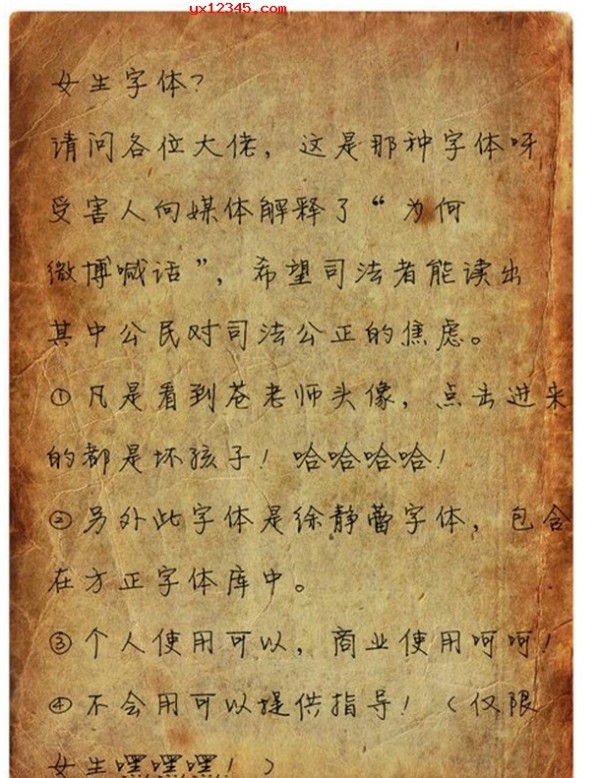 yx12345.com
女生字体?
请问各位大佬，这是那种字体呀
受害人向媒体解释了“为何
微博喊话”，希望司法者能读出
其中公民对司法公正的焦虑。
①凡是看到苍老师头像，点击进来
的都是坏孩子！哈哈哈哈！
②另外此字体是徐静蕾字体，包含
在方正字体库中。
③个人使用可以，商业使用呵呵！
④不会用可以提供指导！（仅限
女生嘿嘿嘿！）